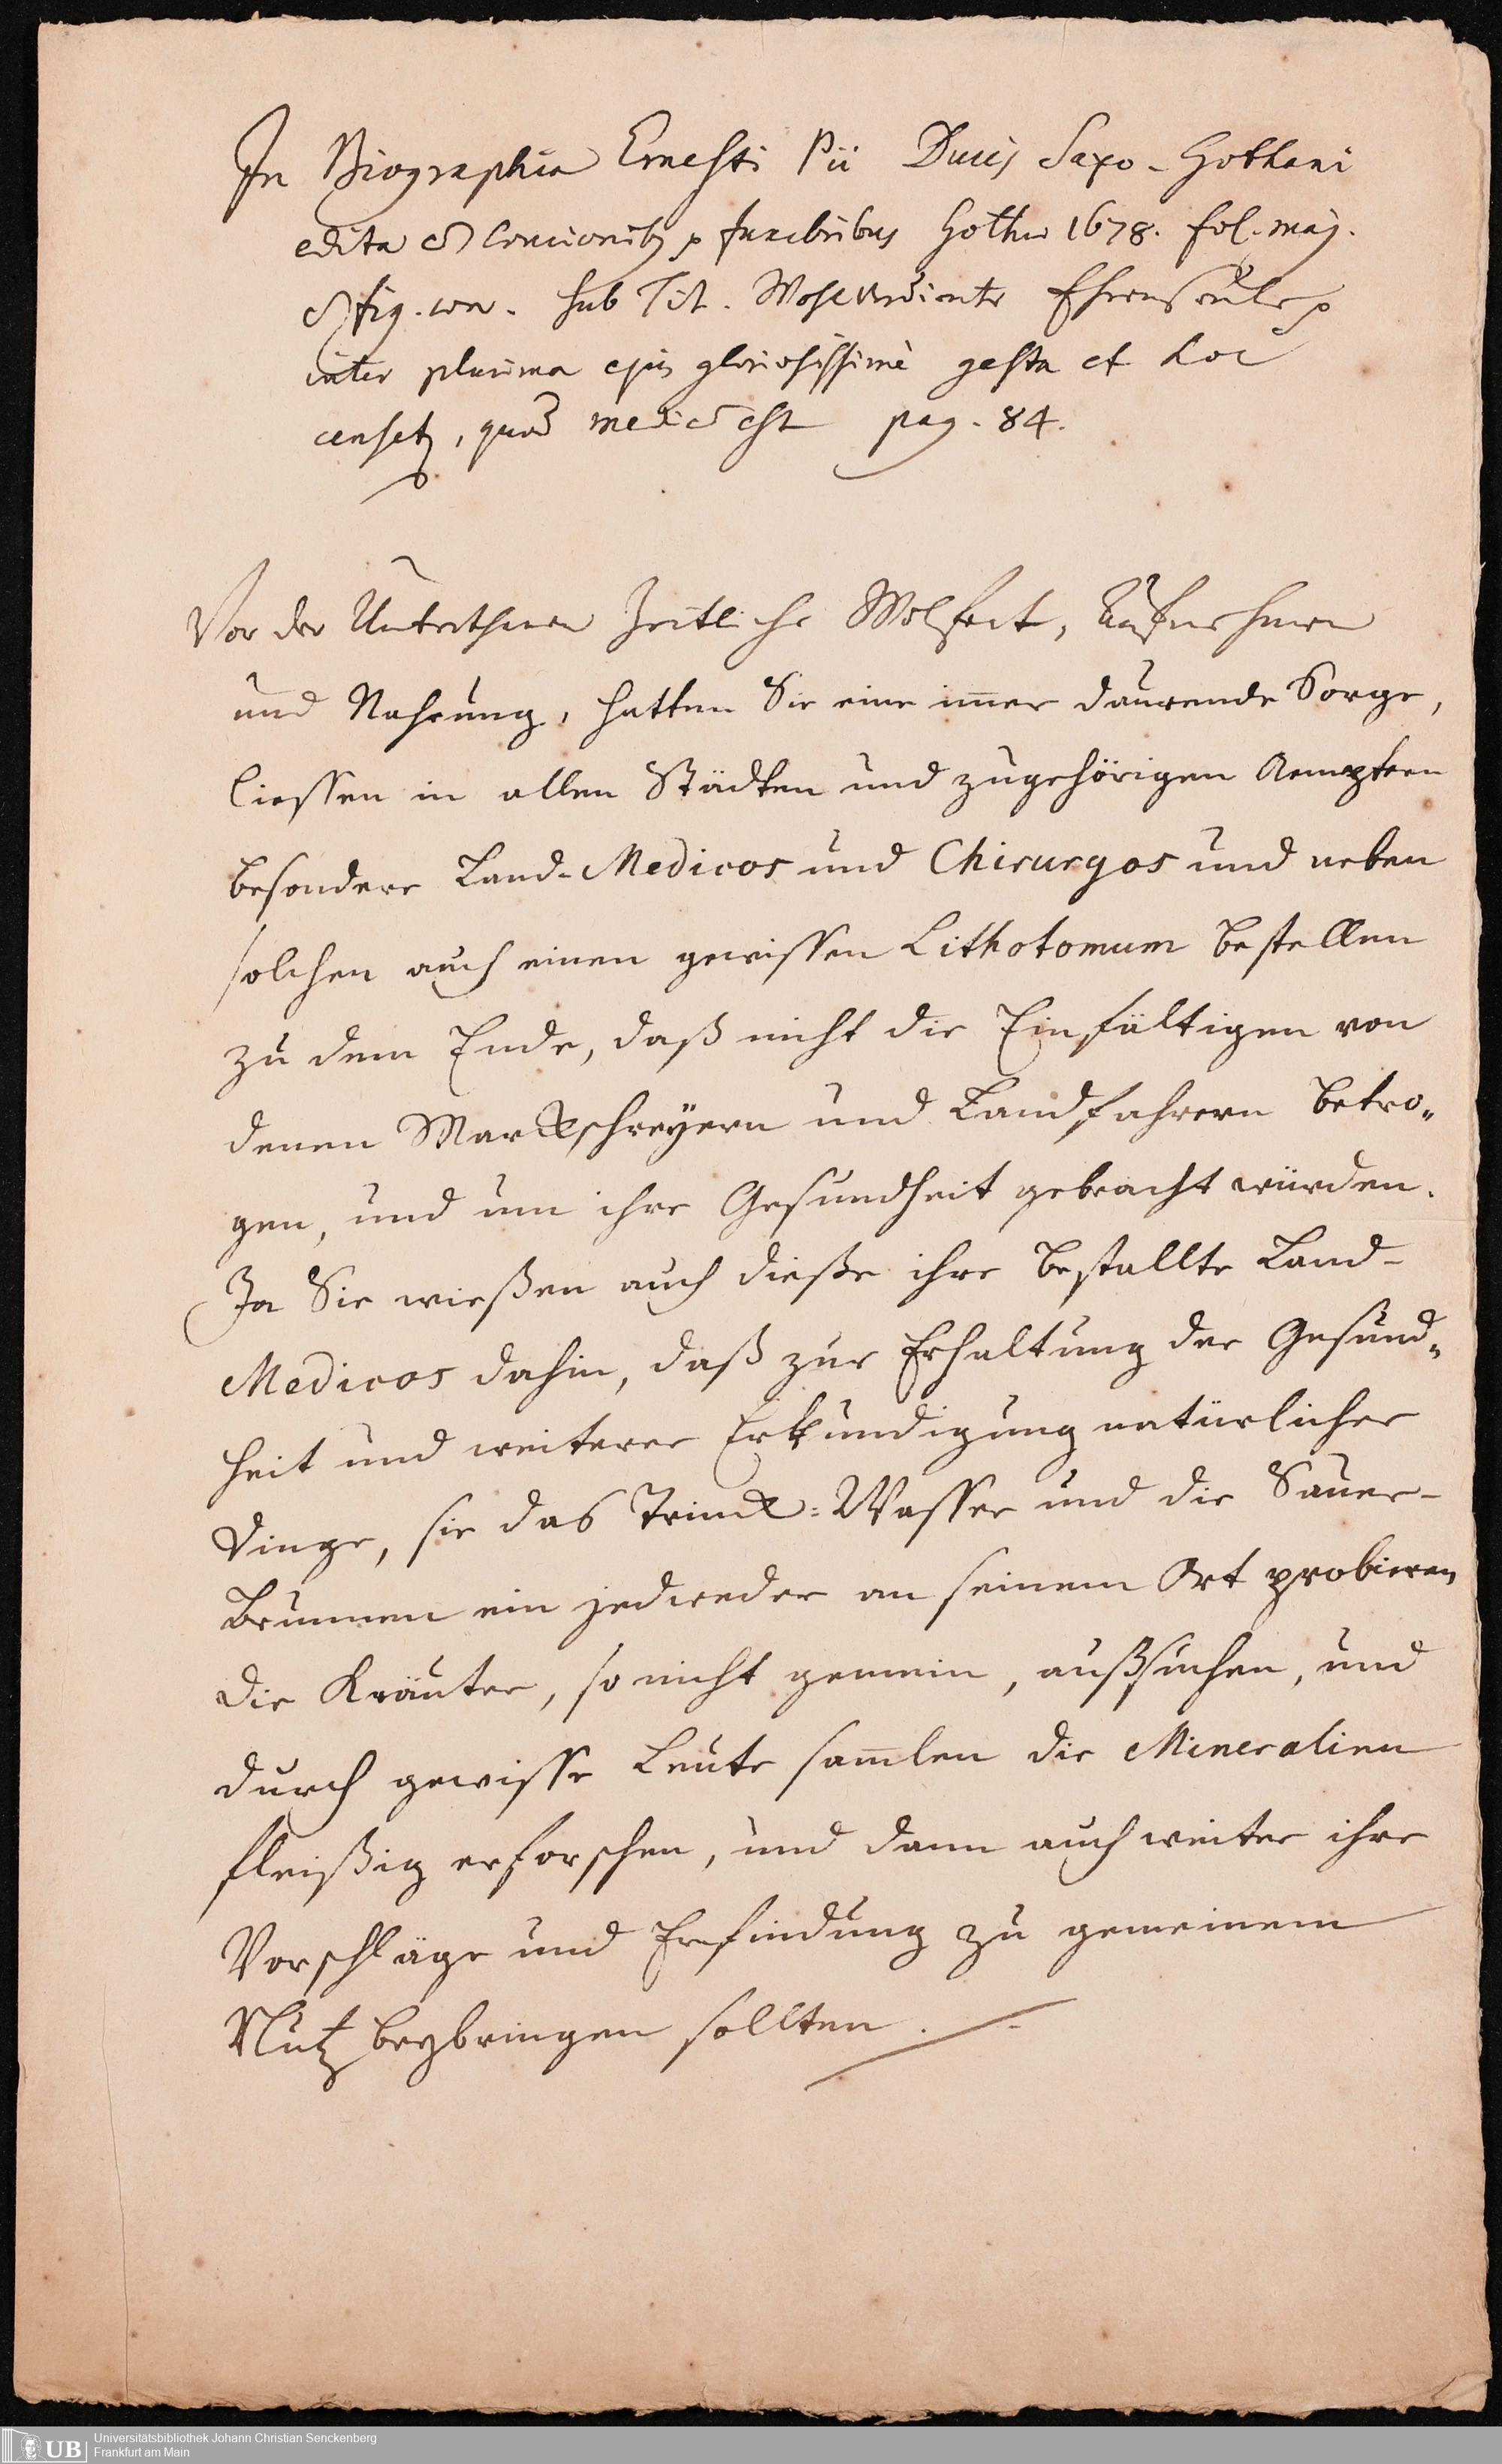 In Biographia Ernesti Pii Ducis Saxo-Gothani
edita c̄ Concionib9 funebribus Gothae 1678. fol. maj.
c̄ fig. aen. sub Tit. Wohlverdiente Ehrenseule
inter plurima ejus gloriosissimè gesta et hoc
censetur, quod medicū est pag. 84.
Vor der Unterthanen Zeitliche Wolfart, Aufnehmen
und Nahrung, hatten Sie eine im̅er daurende Sorge,
liessen in allen Städten und zugehörigen Aemptern
besondere Land-Medicos und Chirurgos und neben
solchen auch einen gewissen Lithotomum bestellen
zu dem Ende, daß nicht die Einfältigen von
denen Marckschreyern und Landfahrern betro„
gen, und um ihre Gesundheit gebracht würden.
Ja Sie wießen auch dieße ihre bestallte Land-
Medicos dahin, daß zur Erhaltung der Gesund„
heit und weiterer Erkundigung natürlicher
Dinge, sie das Trinck-Wasser und die Sauer-
Brunnen ein jedweder an seinem Ort probieren
die Kräuter, so nicht gemein, außsuchen, und
durch gewisse Leute sam̅len die Mineralien
fleißig erforschen, und dann auch weiter ihre
Vorschläge und Erfindung zu gemeinem
Nutz beybringen sollten.
UB
Universitätsbibliothek Johann Christian Senckenberg
Frankfurt am Main